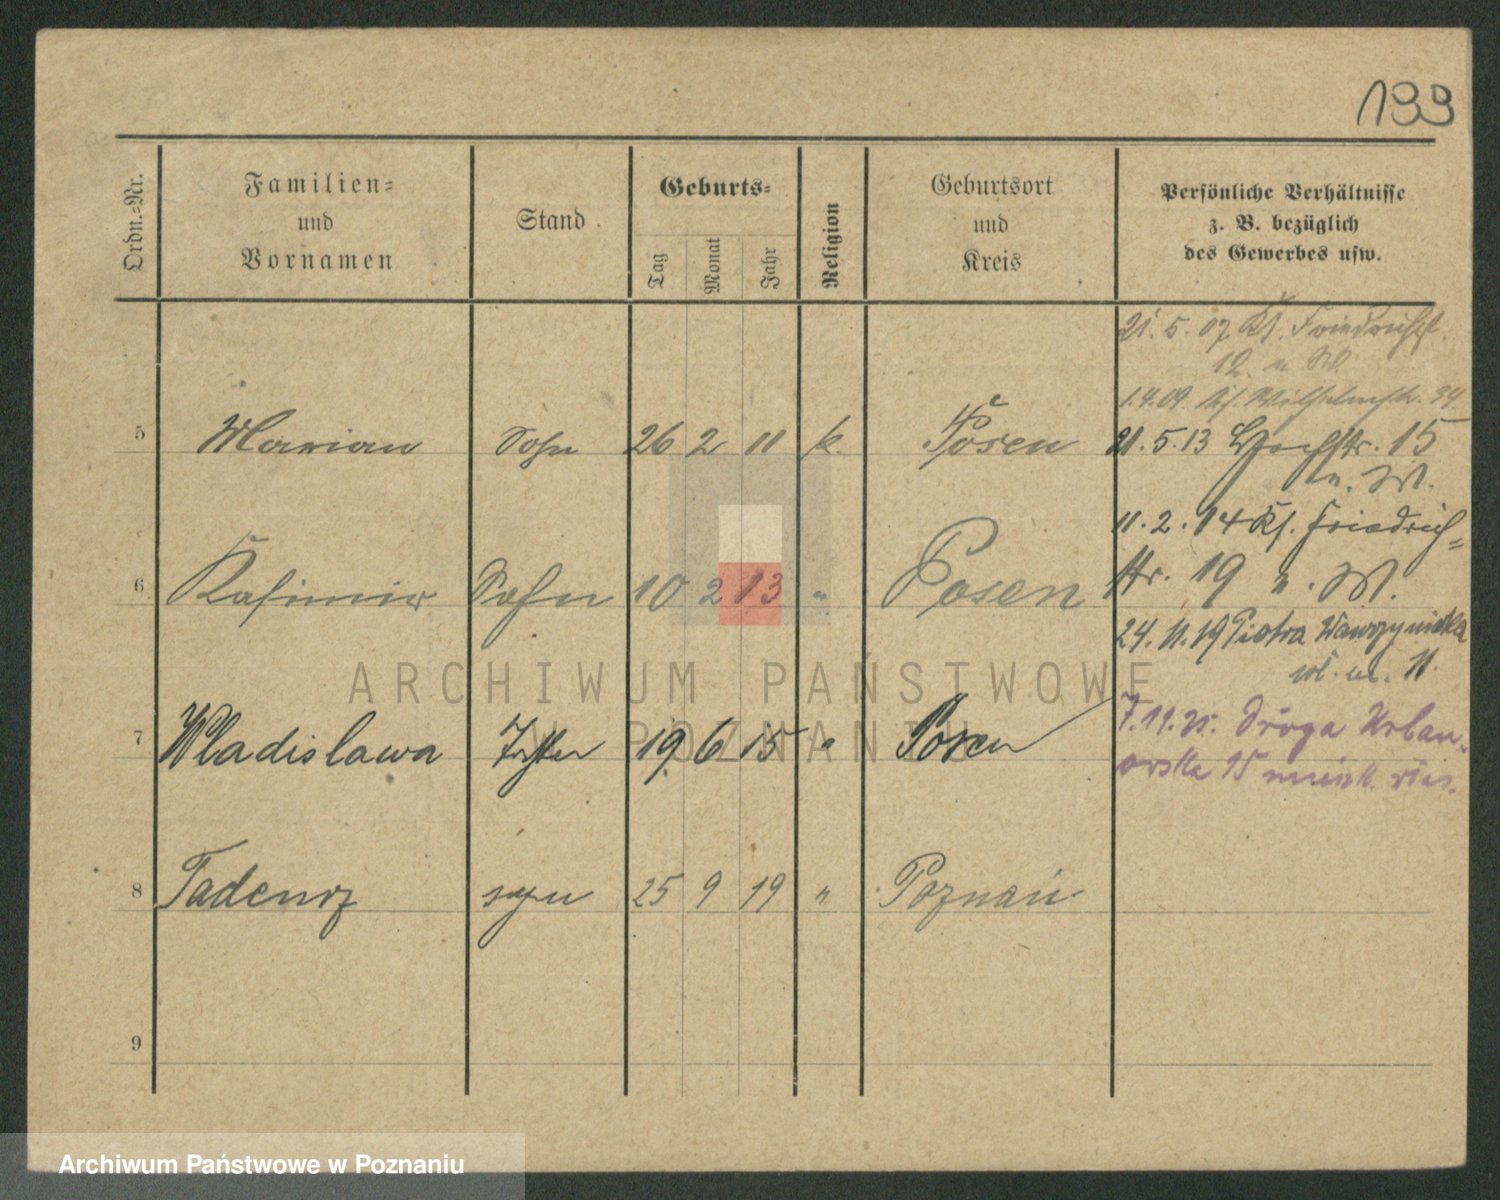 199
Ordn.=Nr.
Familien=
und
Vornamen
Stand
Geburts=
Tag
Monat
Jahr
Religion
Geburtsort
und
Kreis
Persönliche Verhältnisse
z. B. bezüglich
des Gewerbes usw.
21. 5. 07 Kl. Friedrichst.
12
1.4.09. Wilhelmstr. 24
5 Marian Sohn 26 2 11 k. Posen
21.5.13 15
11.2.14 Kl. Friedrich=
str. 19 n. W.
6 Kasimir Sohn 10 2 13 " Posen
24.11.19 Piotra Wawrzyniaka
11.
7 Wladislawa Tochter 19. 6 15 " Posen
7.11.21. Droga Urban-
owska 15
8 Tadeusz sohn 25 9 19 " Poznań
9
ARCHIWUM PAŃSTWOWE
W POZNANIU
Archiwum Państwowe w Poznaniu